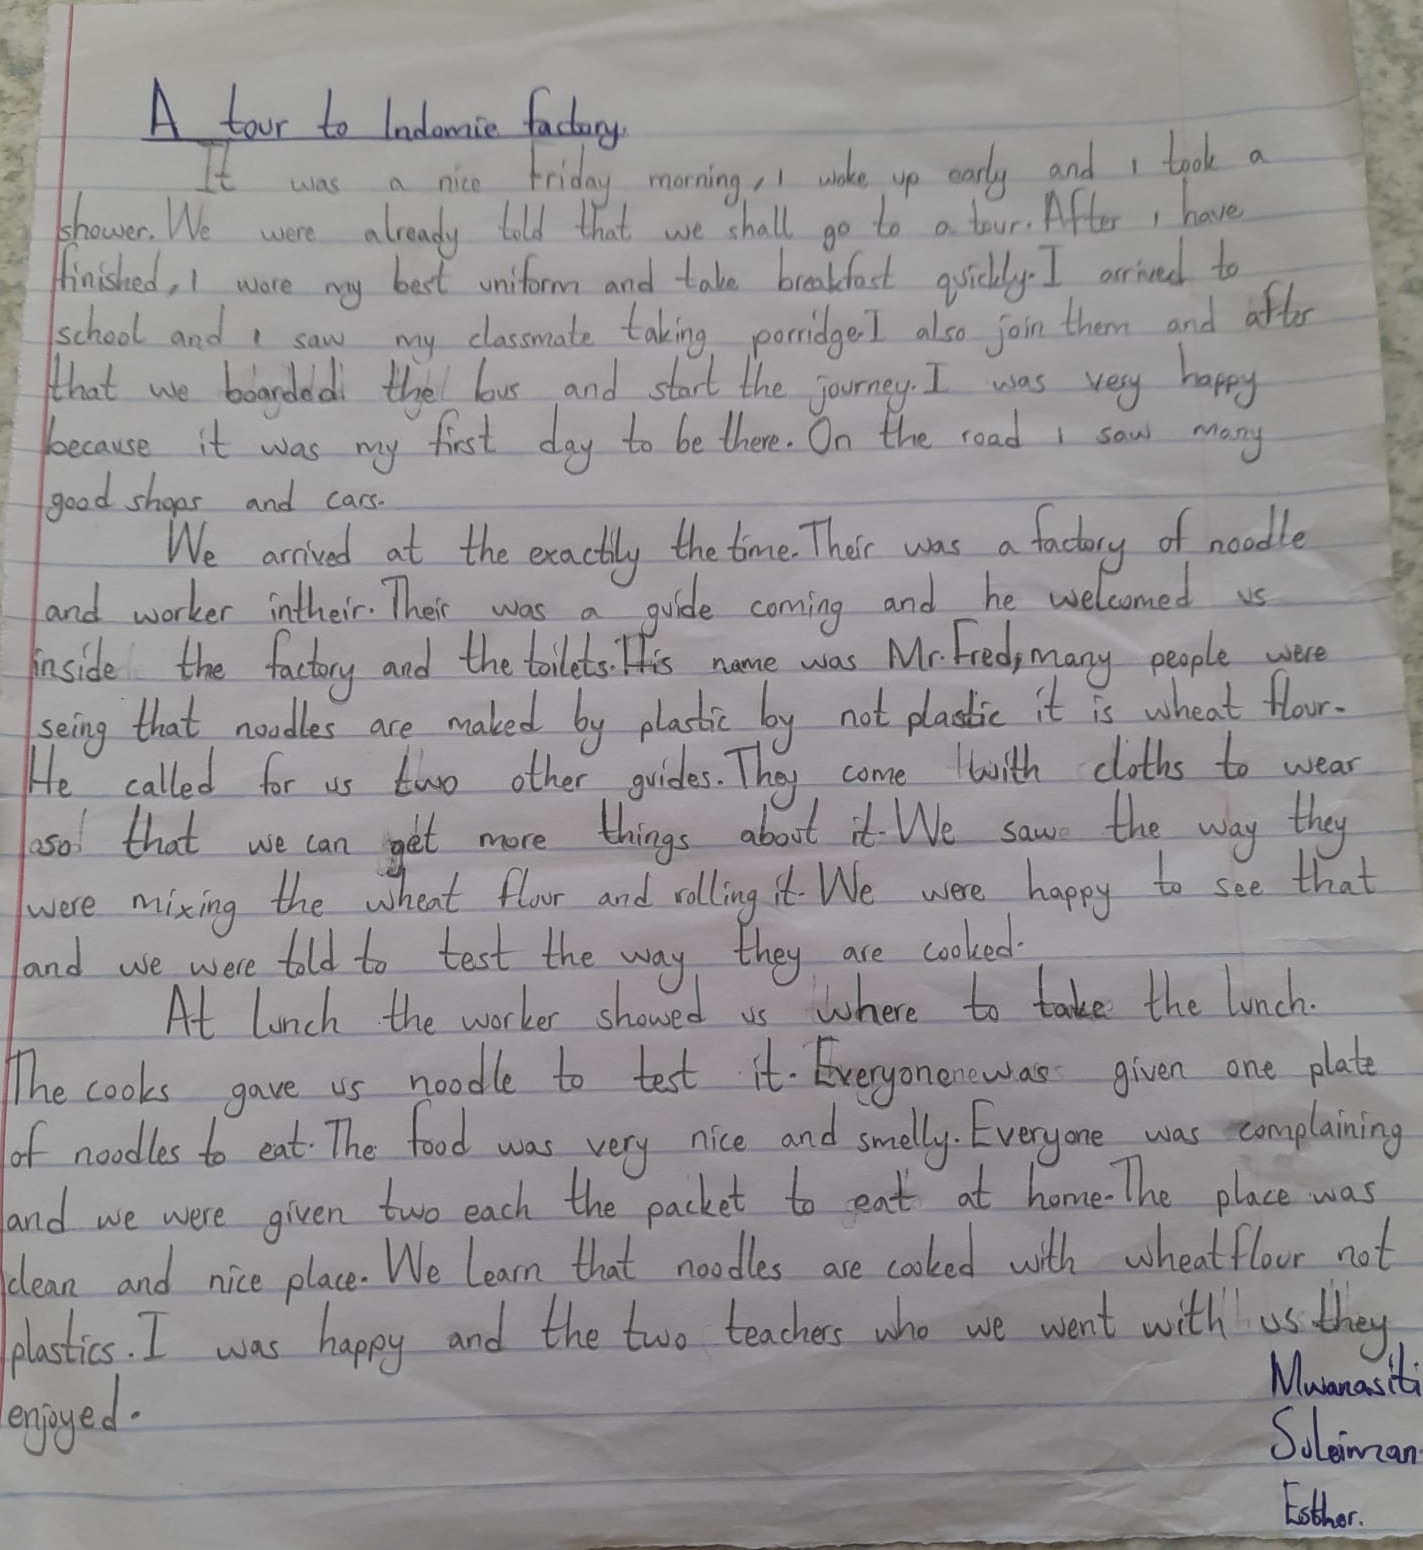 A tour to Indomie factory.
It was a nice Friday morning, I woke up early and I took a
shower. We were already told that we shall go to a tour. After I have
finished, I wore my best uniform and take breakfast quickly. I arrived to
school and I saw my classmate taking porridge. I also join them and after
that we boarded the bus and start the journey. I was very happy
because it was my first day to be there. On the road I saw many
good shops and cars.
We arrived at the exactily the time. Their was a factory of noodle
and worker intheir. Their was a guide coming and he welcomed us
inside the factory and the toilets. His name was Mr. Fred, many people were
seing that noodles are maked by plastic by not plastic it is wheat flour.
He called for us two other guides. They come with cloths to wear
aso that we can get more things about it. We saw the way they
were mixing the wheat flour and rolling it. We were happy to see that
and we were told to test the way they are cooked.
At lunch the worker showed us where to take the lunch.
The cooks gave us noodle to test it. Everyonenewas given one plate
of noodles to eat. The food was very nice and smelly. Everyone was complaining
and we were given two each the packet to eat at home. The place was
clean and nice place. We learn that noodles are cooked with wheatflour not
plastics. I was happy and the two teachers who we went with us they
enjoyed.
Mwanasiti
Suleiman
Esther.